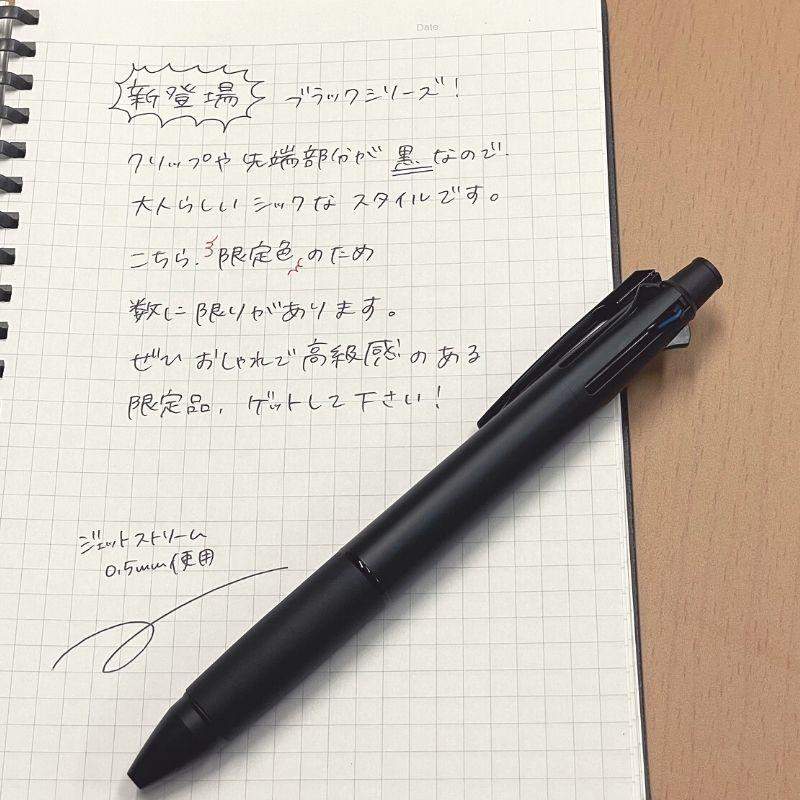 Date
新登場 ブラックシリーズ!
クリップや先端部分が黒なので
大人らしいシックなスタイルです。
こちら、限定色のため
数に限りがあります。
ぜひおしゃれで高級感のある
限定品、ゲットして下さい!
ジェットストリーム
0.5mm使用